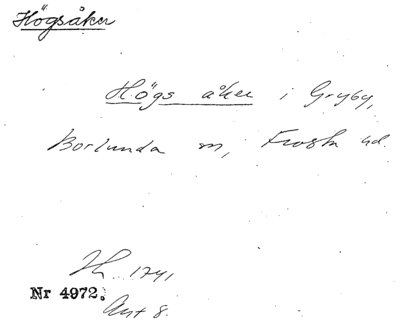 Högsåker
Högs åker i Gryby,
Borlunda sn, Frosta hd.
1741
Nr 4972.
Ant 8.